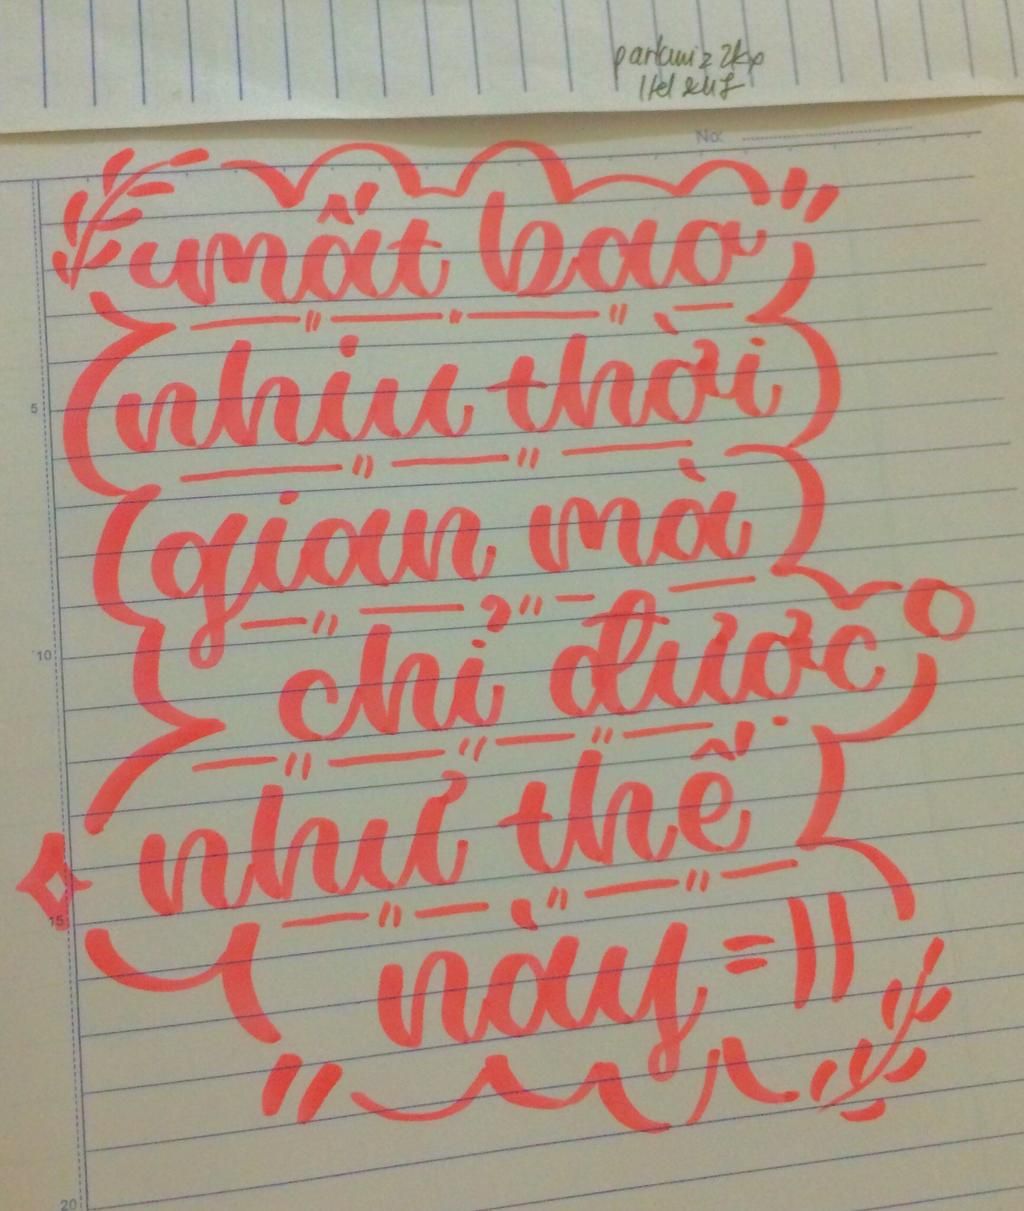 No:
mất bao
nhiu thời
gian mà
chỉ được
như thế
này =))
5
10
15
20